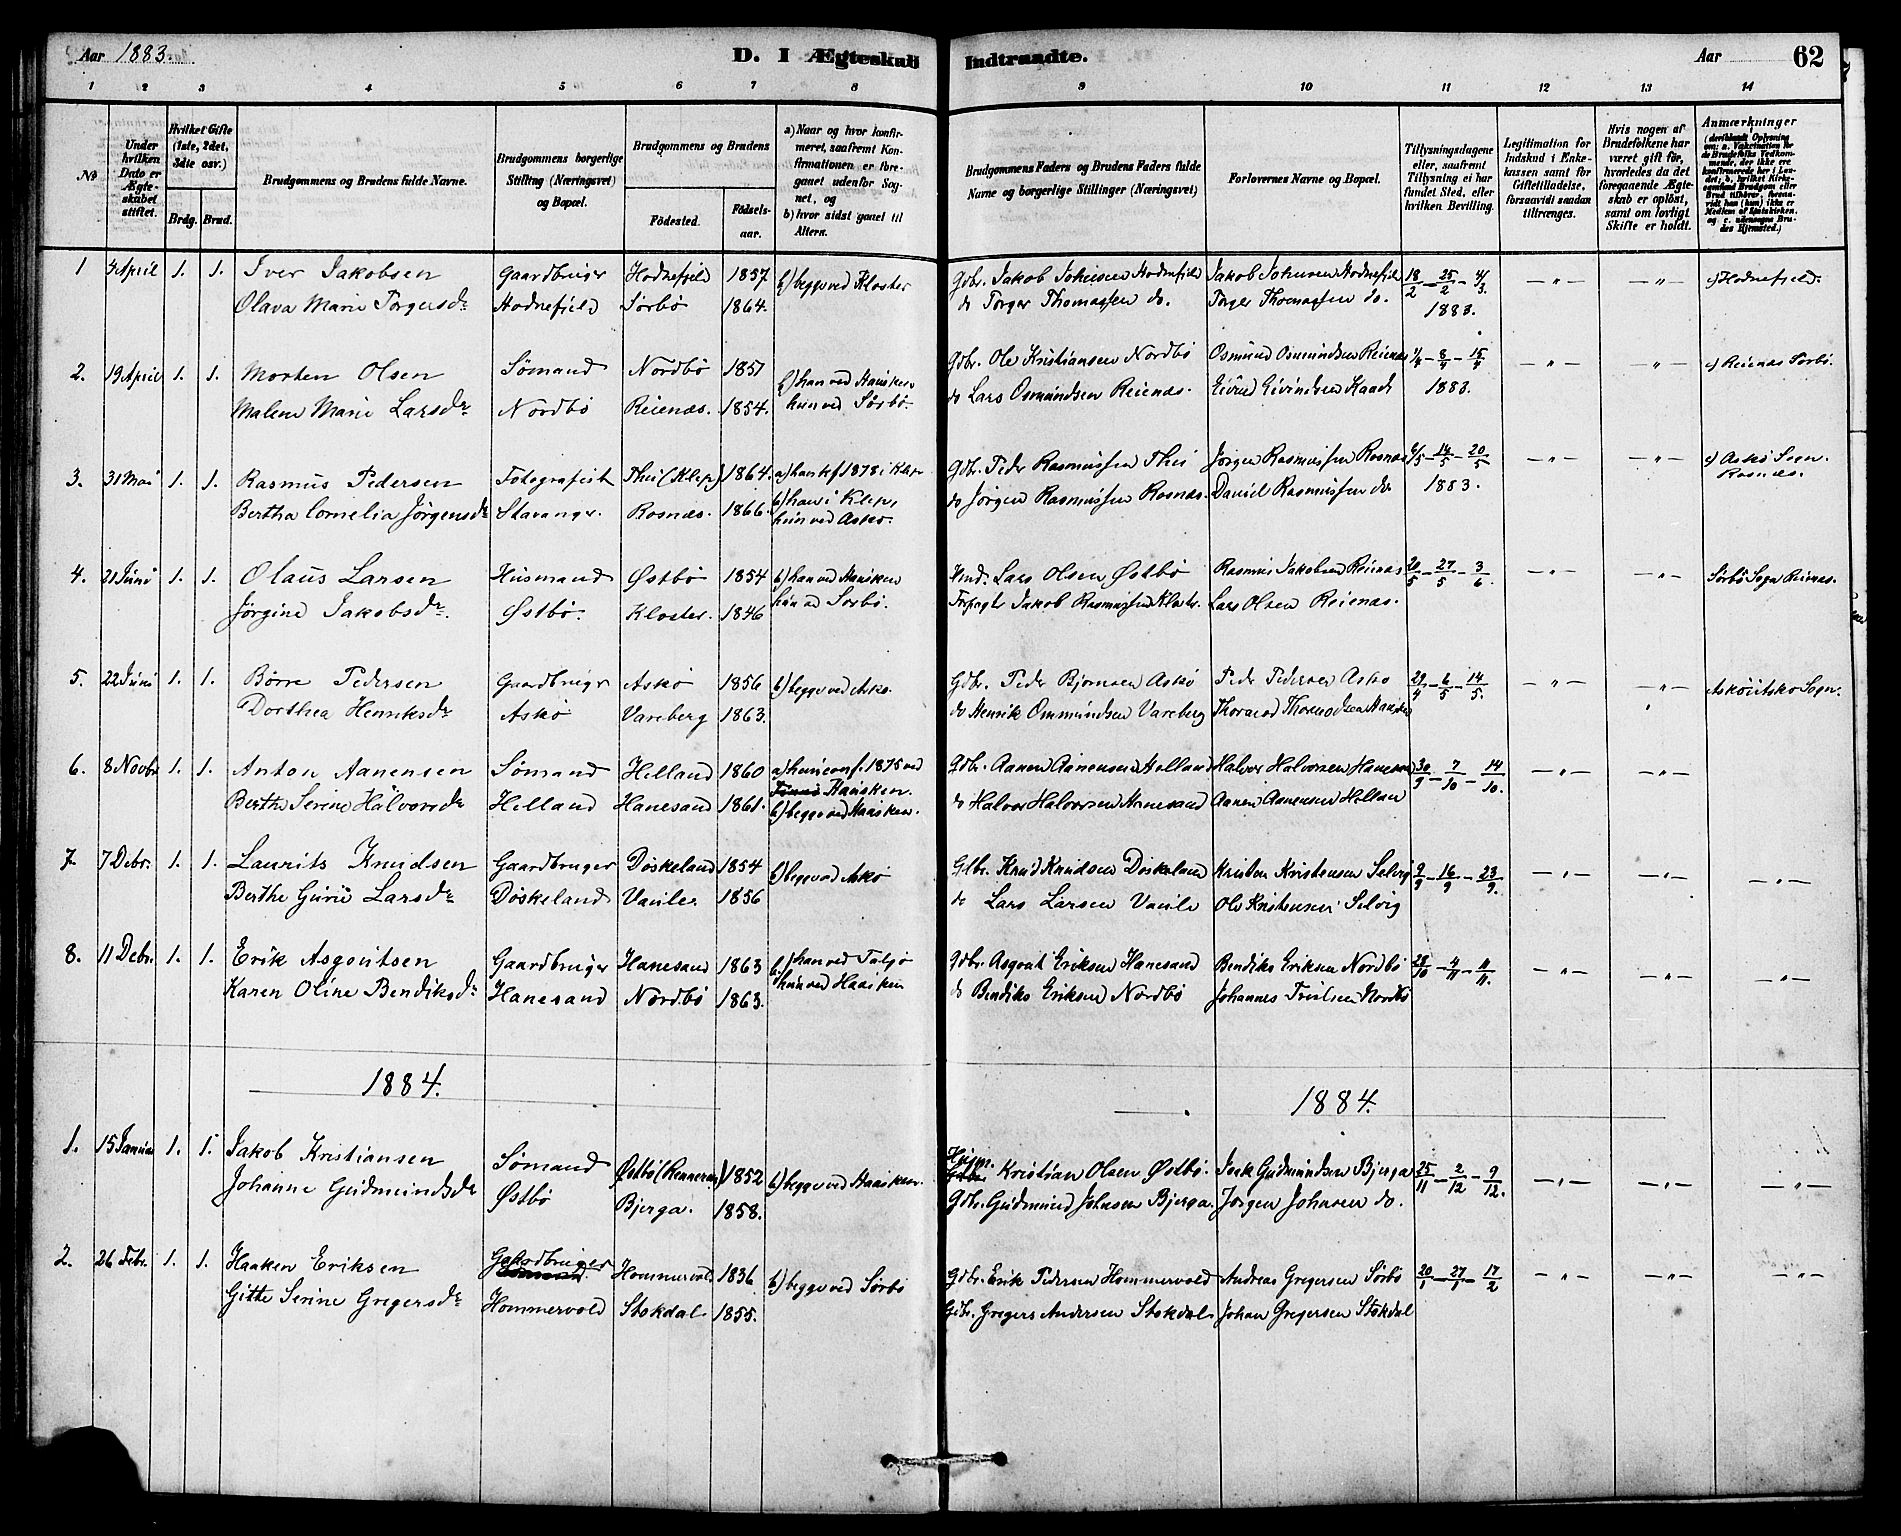 Aar 1883. D. I Ægteskab Indtraadte. Aar 62
1 2 3 4 5 6 7 8 9 10 11 12 13 14
No
Under hvilken Dato er Ægteskabet stiftet.
Hvilket Gifte (1ste, 2det, 3die osv.)
Brdg. Brud.
Brudgommens og Brudens fulde Navne.
Brudgommens borgerlige Stilling (Næringsvei) og Bopæl.
Brudgommens og Brudens
Födested. Födsels-aar.
a) Naar og hvor konfirmeret, saafremt Konfirmationen er foregaaet udenfor Sognet, og
b) hvor sidst gaaet til Alters.
Brudgommens Faders og Brudens Faders fulde Navne og borgerlige Stillinger (Næringsvei)
Forlovernes Navne og Bopæl.
Tillysningsdagene eller, saafremt Tillysning ei har fundet Sted, efter hvilken Bevilling.
Legitimation for Indskud i Enkekassen samt for Giftetilladelse, forsaavidt saadan tiltrænges.
Hvis nogen af Brudefolkene har været gift för, hvorledes da det foregaaende Ægteskab er oplöst, samt om lovligt Skifte er holdt.
Anmærkninger
1 4 April 1. 1. Iver Jakobsen Gaardbruger Hodnefjeld 1857 b) begge ved Kloster Gdbr. Jakob Johnsen Hodnefjeld Jakob Johnsen Hodnefjeld 18/2 - 25/2 - 4/3. — " — — " — c) Hodnefjeld.
Olava Marie Torgersdr Hodnefjeld Sörbö 1864. do Torger Thomassen do. Torger Thomassen do. 1883.
2. 19 April 1. 1. Morten Olsen Sömand Nordbö 1851 b) han ved Hausken Gdbr. Ole Kristiansen Nordbö Osmund Osmundsen Reienæs 1/4 - 8/4 - 15/4 — " — — " — c) Reienæs Sörbö.
Malene Marie Larsdr Nordbö Reienæs. 1854. hun ved Sörbö. do Lars Osmundsen Reienæs. Eivind Eivindsen Haade 1883.
3. 31 Mai 1. 1. Rasmus Pedersen Fotografist Thu (Klep) 1864. a) han kf 1878 i Klep Gdbr. Peder Rasmussen Thu Jörgen Rasmussen Rosnæs 6/5 - 14/5 - 20/5 — " — — " — c) Askö Sogn.
Bertha Cornelia Jörgensdr Stavanger. Rosnæs. 1866. b) han i Klep, do Jörgen Rasmussen Rosnæs. Daniel Rasmussen do 1883. Rosnæs.
hun ved Askö.
4. 21 Juni 1. 1. Olaus Larsen Husmand Østbö 1854 b) han ved Hausken Hmd. Lars Olsen Østbö Rasmus Jakobsen Reienæs 20/5 - 27/5 - 3/6. — " — — " — Sörbö Sogn Reienæs.
Jörgine Jakobsdr. Østbö. Kloster. 1846 hun ved Sörbö. Forpagter Jakob Rasmussen Kloster. Lars Olsen Reienæs.
5. 22 Juni 1. 1. Børre Pedersen Gaardbruger Askö 1856 b) begge ved Askö. Gdbr. Peder Bjørnsen Askö Peder Pedersen Askö 29/4 - 6/5 - 14/5. — " — — " — Askö i Askö Sogn.
Dorthea Henriksdr Askö Vareberg 1863. do Henrik Ommundsen Vareberg
6. 8 Novbr 1. 1. Anton Aanensen Sömand Helland 1860 a) hun conf. 1875 ved Gdbr. Aanen Aanensen Helland Halvor Halvorsen Hanesand 30/9 - 7/10 - 14/10. — " — — " —
Berthe Serine Halvorsdr Helland Hanesand 1861. Hausken. do Halvor Halvorsen Hanesand Aanen Aanensen Helland
b) begge ved Hausken.
7. 7 Debr. 1. 1. Laurits Knudsen Gaardbruger Döskeland 1854 b) begge ved Askö Gdbr. Knud Knudsen Döskeland Kristen Kristensen Selvig 9/9 - 16/9 - 23/9. — " — — " — — " —
Berthe Gurie Larsdr Döskeland Vaule. 1856 do Lars Larsen Vaule Ole Kristensen Selvig
8. 11 Debr. 1. 1. Erik Asgoutsen Gaardbruger Hanesand 1863 b) han ved Talgö Gdbr. Asgout Eriksen Hanesand Bendiks Eriksen Nordbö 28/10 - 4/11 - 11/11. — " — — " — — " —
Karen Oline Bendiksdr Hanesand Nordbö 1863. hun ved Hausken do Bendiks Eriksen Nordbö Johannes Nordbö
1884. 1884.
1. 15 Januar 1. 1. Jakob Kristiansen Sömand Østbö (Rennesø) 1852 b) begge ved Hausken. Kristian Olsen Østbö. Gudmundsen Bjerga 25/11 - 2/12 - 9/12. — " — — " — — " —
Johanne Gudmundsdr Østbö Bjerga. 1858. Gdbr. Gudmund Johnsen Bjerga. Jörgen Johnsen do.
2. 26 Febr. 1. 1. Haaken Eriksen Gaardbruger Hommervold 1836 b) begge ved Sörbö Gdbr. Erik Pedersen Hommervold Andreas Gregersen Sörbö 20/1 - 27/1 - 17/2 — " — — " — — " —
Gitte Serine Gregersdr Hommervold Stokdal 1855. Gdbr. Gregers Andersen Stokdal. Johan Gregersen Stokdal